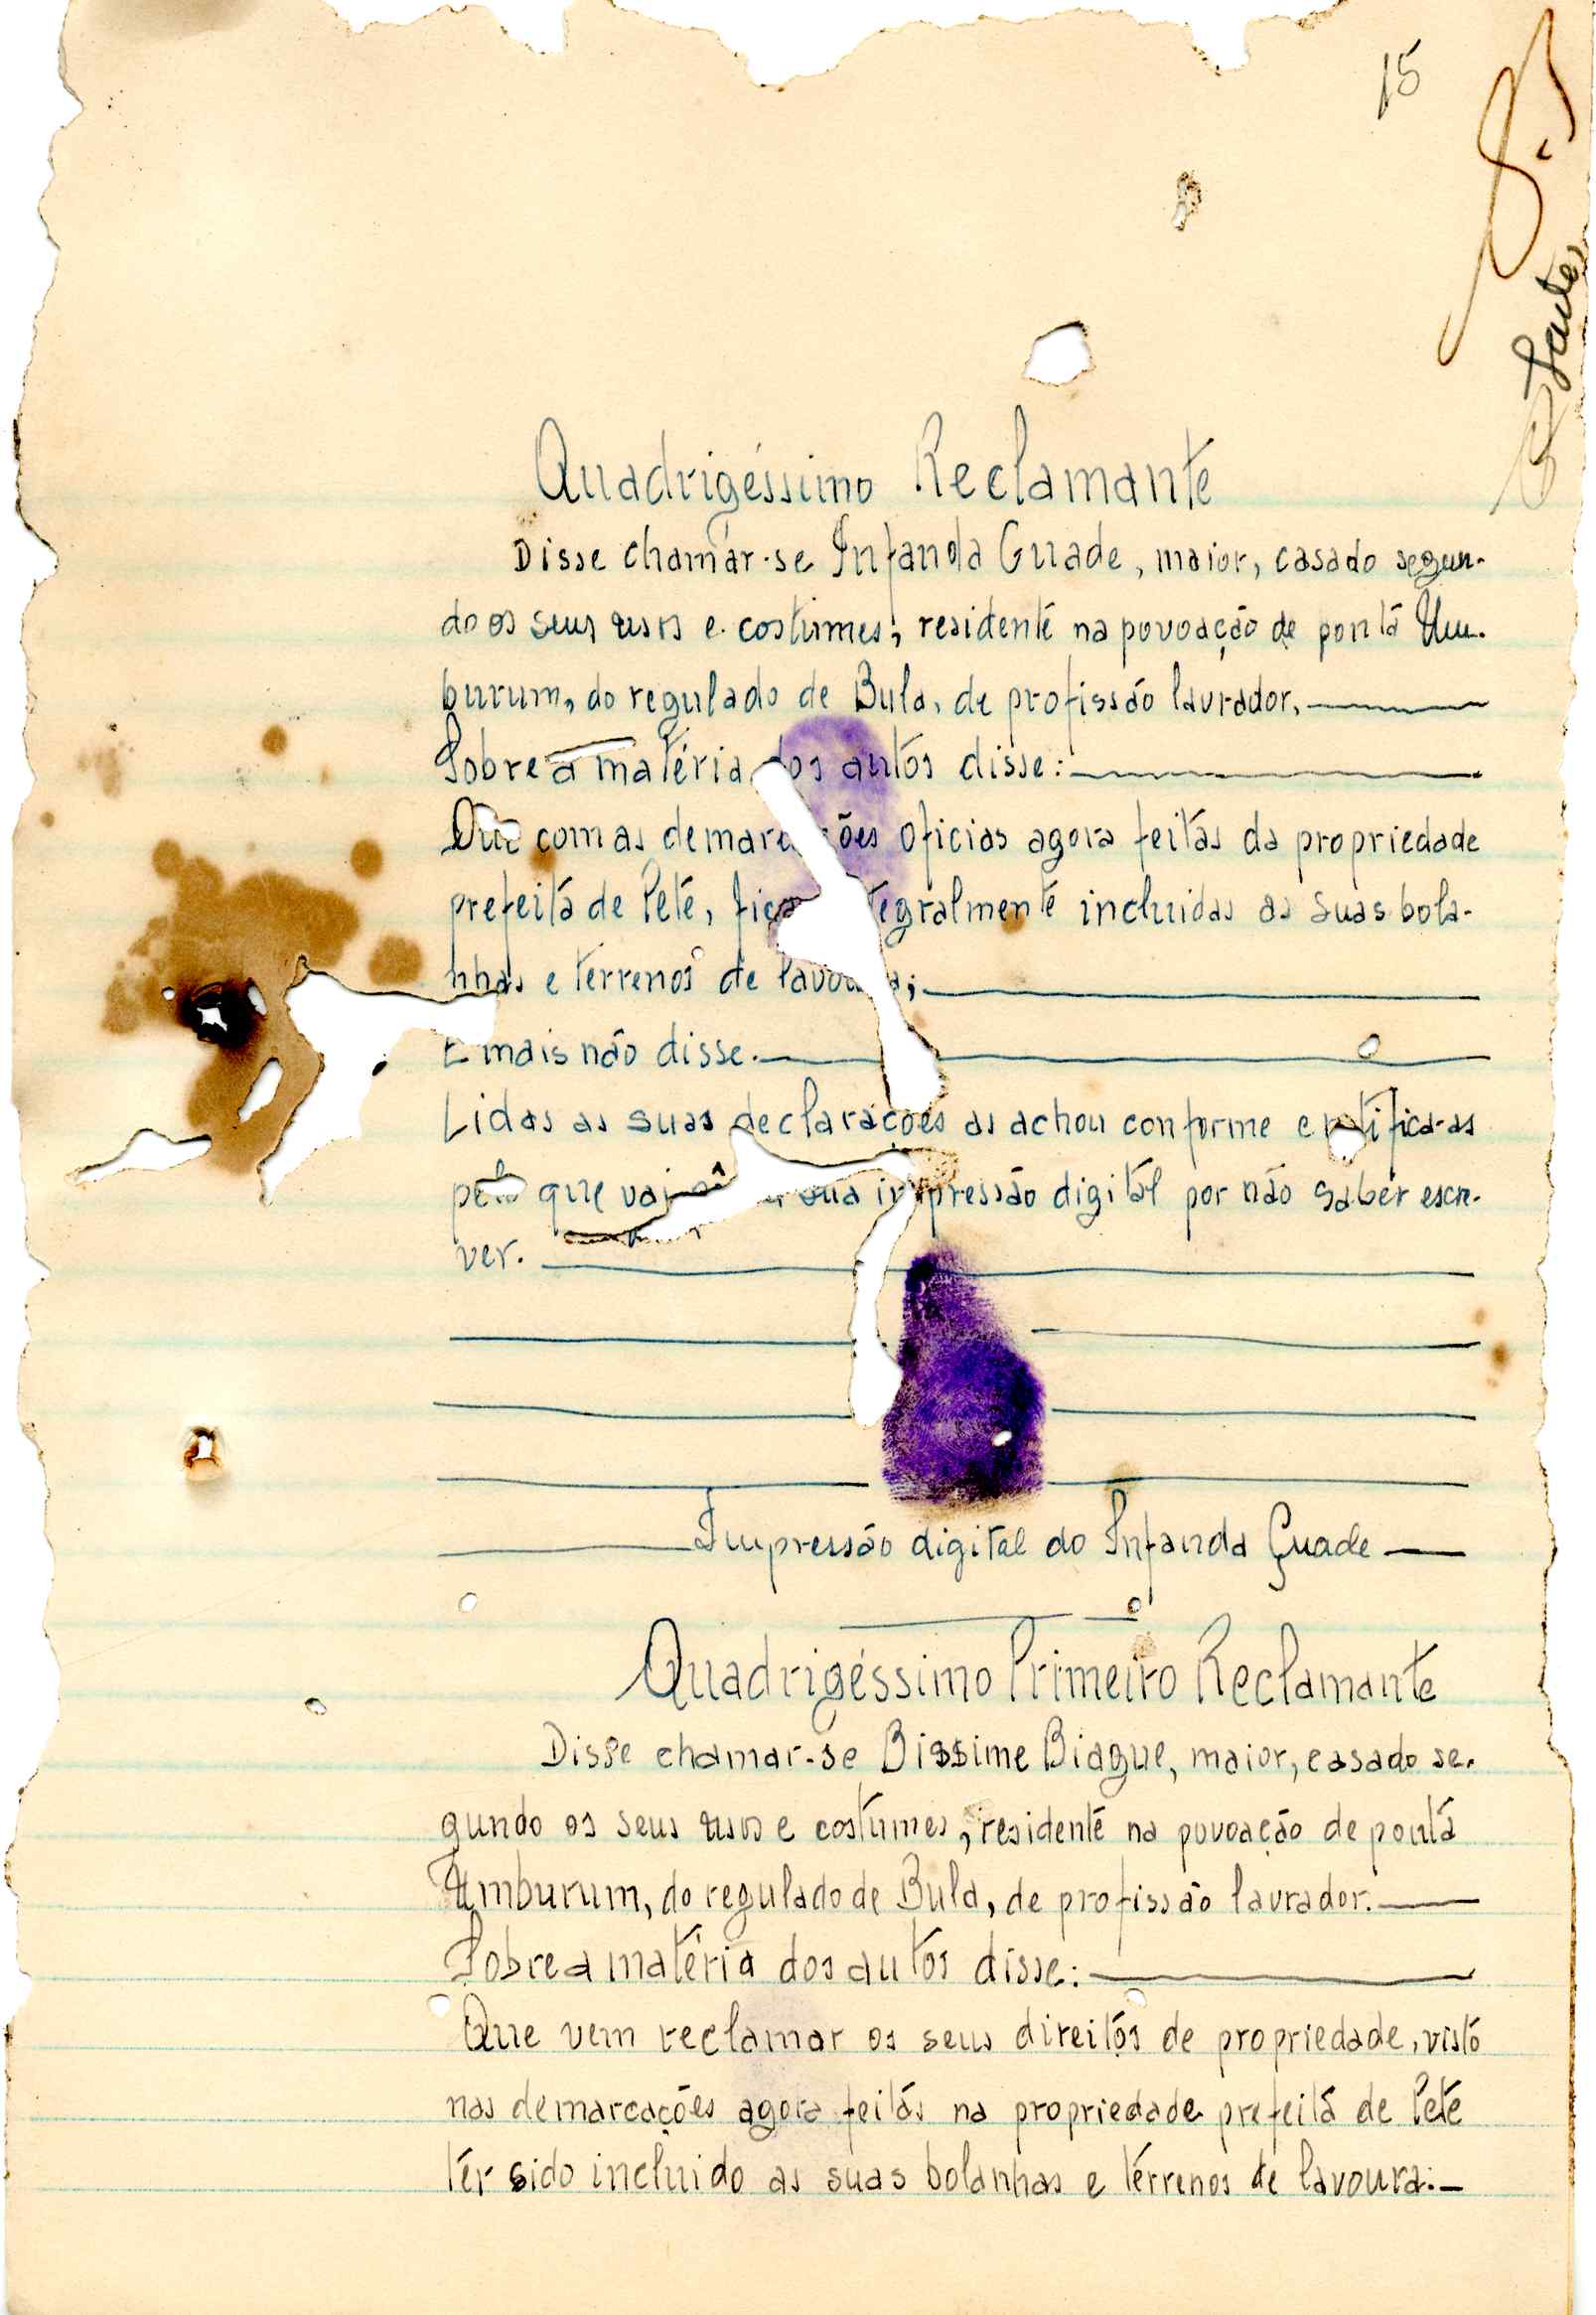 15
Santos
Quadrigéssimo Reclamante
Disse chamar-se Infanda Guade, maior, casado segun-
do os seus usos e costumes, residente na povoação de ponta Um-
burum, do regulado de Bula, de profissão lavrador.
Sobre a matéria dos autos disse:
Que com as demarcações oficias agora feitas da propriedade
prefeita de Peté, tegralmente incluidas as suas bola-
nhas e terrenos de lavoura;
E mais não disse.
Lidas as suas declarações as achou conforme e ratifica-as
pelo que vai sua impressão digital por não saber escre-
ver.
Impressão digital do Infanda Guade
Quadrigéssimo Primeiro Reclamante
Disse chamar-se Bissime Biague, maior, casado se-
gundo os seus usos e costumes, residente na povoação de ponta
Umburum, do regulado de Bula, de profissão lavrador.
Sobre a matéria dos autos disse:
Que vem reclamar os seus direitos de propriedade, visto
nas demarcações agora feitas na propriedade prefeita de Peté
ter sido incluido as suas bolanhas e terrenos de lavoura.